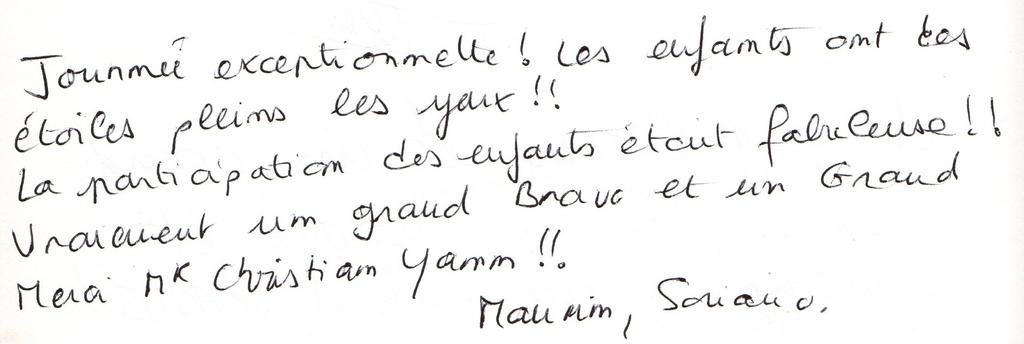 Journée exceptionnelle ! Les enfants ont des
étoiles pleins les yeux !!
La participation des enfants était fabuleuse !!
Vraiment un grand Bravo et un Grand
Merci Mr Christian Yann !!
Maurin, Soriano.